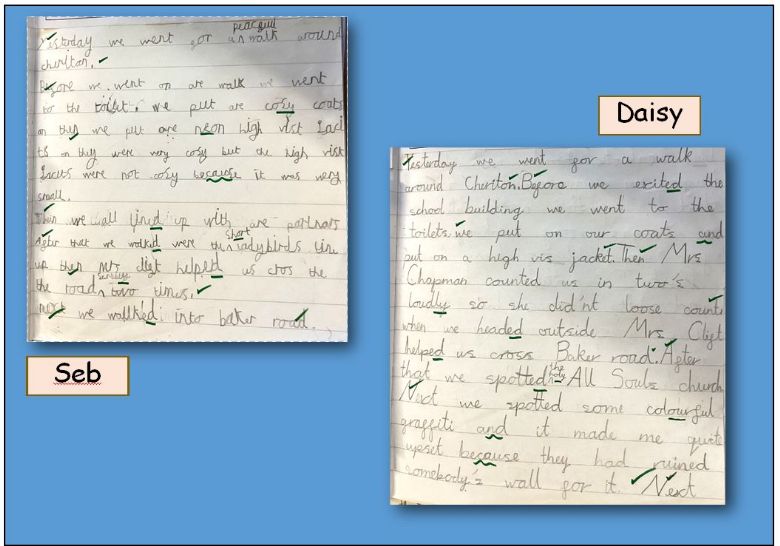 peaceful
Yesterday we went for a walk around
cherlton.
Before we went on are walk we went
to the toilet. we put are cosy coats
on then we put are neon high vist Jaci
ts on they were very cosy but the high vist
Jacits were not cosy because it was very
small.
Then we all lined up with are partnars
short
After that we walked were the ladybirds line
up then mrs cligt helped us cros the
the road two times.
next we wallkied into baker road.
Seb
Daisy
Yesterday we went for a walk
around Cherlton. Before we exited the
school building we went to the
toilets. we put on our coats and
put on a high vis jacket. Then Mrs
Chapman counted us in two's
loudly so she did'nt loose count.
when we headed outside Mrs Cligt
helped us cross Baker road. After
the holy
that we spotted All Souls church.
Next we spotted some colourful
graffiti and it made me quite
upset because they had ruined
somebody's wall for it. Next